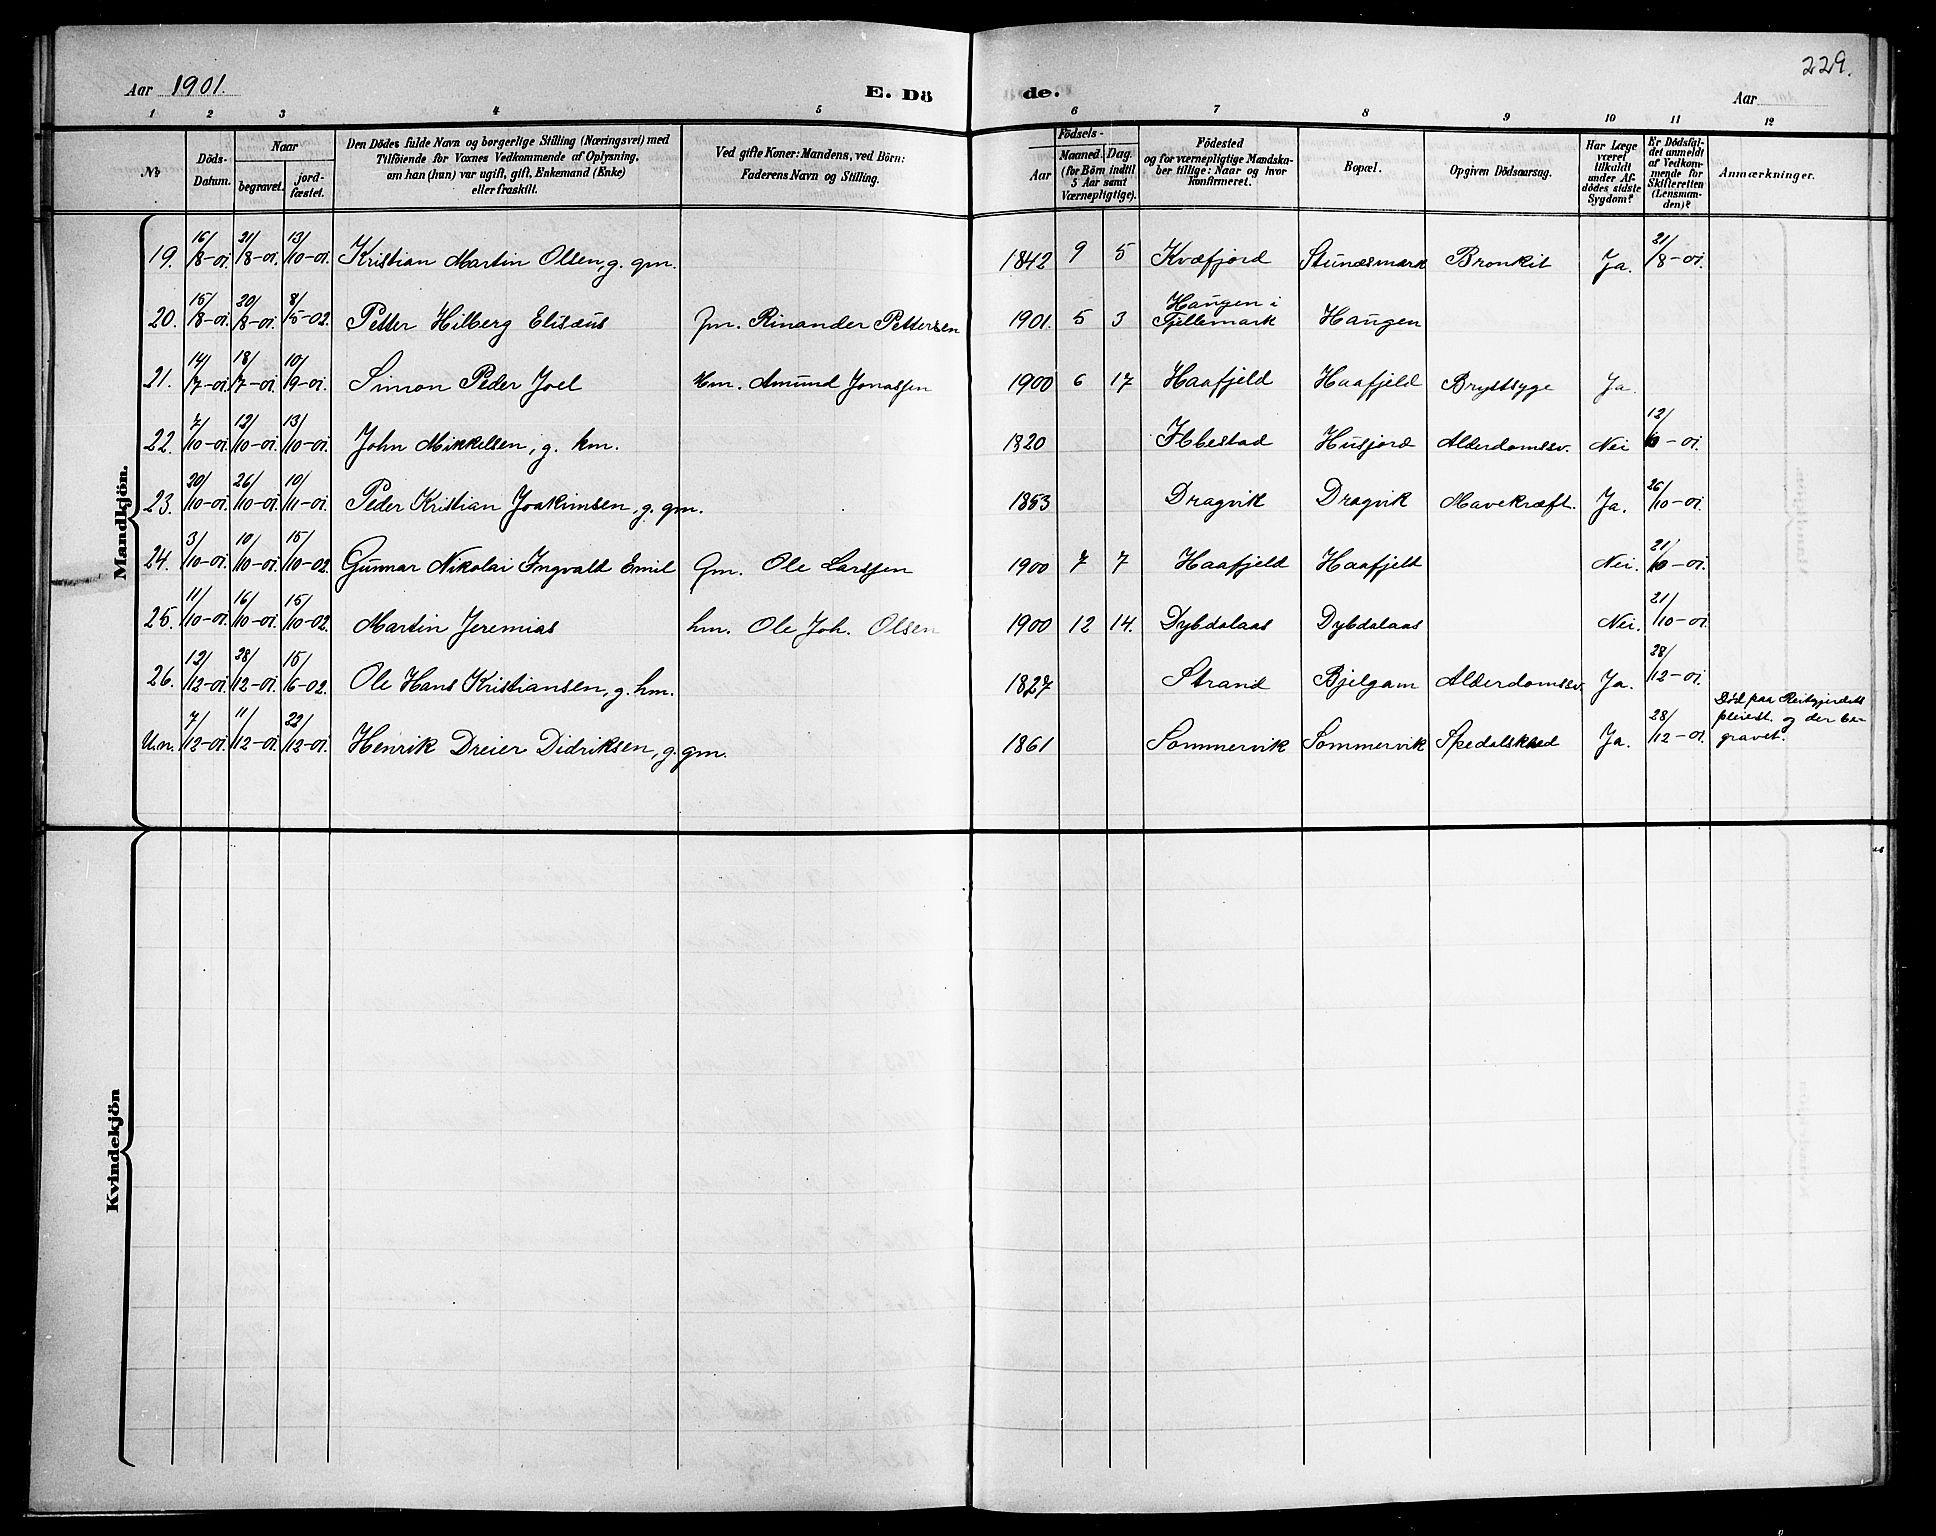 229.
Aar 1901. E. Dö de. Aar
1 2 3 4 5 6 7 8 9 10 11 12
№ Döds-Datum. Naar begravet. jord-fæstet. Den Dödes fulde Navn og borgerlige Stilling (Næringsvei) med Tilföiende for Voxnes Vedkommende af Oplysning, om han (hun) var ugift, gift, Enkemand (Enke) eller fraskilt. Ved gifte Koner: Mandens, ved Börn: Faderens Navn og Stilling. Födsels- Aar Maaned. Dag. (for Börn indtil 5 Aar samt Værnepligtige). Födested og for værnepligtige Mandskaber tillige: Naar og hvor konfirmeret. Bopæl. Opgiven Dödsaarsag. Har Læge været tilkaldt under Afdödes sidste Sygdom? Er Dödsfaldet anmeldt af Vedkommende for Skifteretten (Lensmanden)? Anmærkninger.
Mandkjön.
19. 16/8-01. 21/8-01. 13/10-01. Kristian Martin Olsen, g. gm. 1842 9 5 Kvæfjord Stunæsmark Bronkit Ja. 21/8-01.
20. 15/8-01. 20/8-01. 8/5-02. Petter Hilberg Elisæus Gm. Rinander Pettersen 1901. 5 3 Haugen i Fjellemark Haugen
21. 14/7-01. 18/7-01. 10/9-01. Simon Peder Joel Hm. Amund Jonassen 1900 6 17 Haafjeld Haafjeld Brystsyge Ja
22. 7/10-01. 12/10-01. 13/10-01. John Mikkelsen, g. km. 1820 Ibbestad Husjord Alderdomssv. Nei 12/10-01.
23. 20/10-01. 26/10-01. 10/11-01. Peder Kristian Joakimsen, g. gm. 1853 Dragvik Dragvik Mavekræft. Ja. 26/10-01.
24. 3/10-01. 10/10-01. 15/10-02. Gunnar Nikolai Ingvald Emil Gm. Ole Larssen 1900 7 7 Haafjeld Haafjeld Nei. 21/10-01.
25. 11/10-01. 16/10-01. 15/10-02. Martin Jeremias hm. Ole Joh. Olsen 1900 12 14. Dybdalaas Dybdalaas Nei. 21/10-01.
26. 12/12-01. 28/12-01. 15/6-02. Ole Hans Kristiansen, g. hm. 1827 Strand Bjelgam Alderdomssv. Ja. 28/12-01.
U.n. 7/12-01. 11/12-01. 22/12-01. Henrik Dreier Didriksen, g. gm. 1861 Sommervik Sommervik Spedalskhed Ja. 28/12-01. Död paa Reitgjerdets pleiest. og der begravet.
Kvindekjön